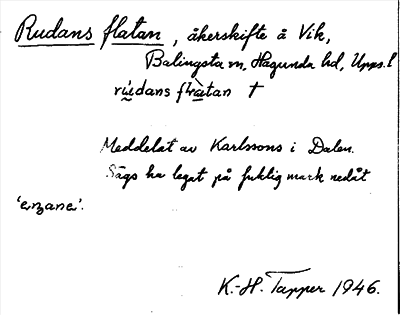 Rudans flatan, åkerskifte å Vik,
Balingsta sn, Hagunda hd, Upps. l
rudans flatan †
Meddelat av Karlssons i Dalen.
Sägs ha legat på fuktig mark nedåt
'enzane'.
K.-H. Tapper 1946.